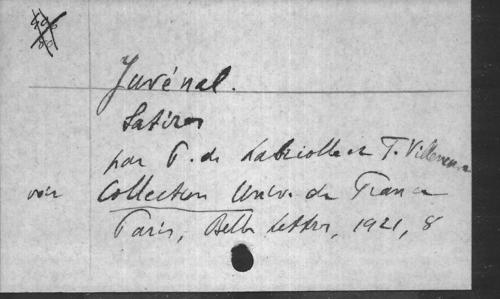 Juvénal.
Satires
par P. de Labriolle et F. Villeneuve
voir Collection Univ. de France
Paris, Belles Lettres, 1921, 8